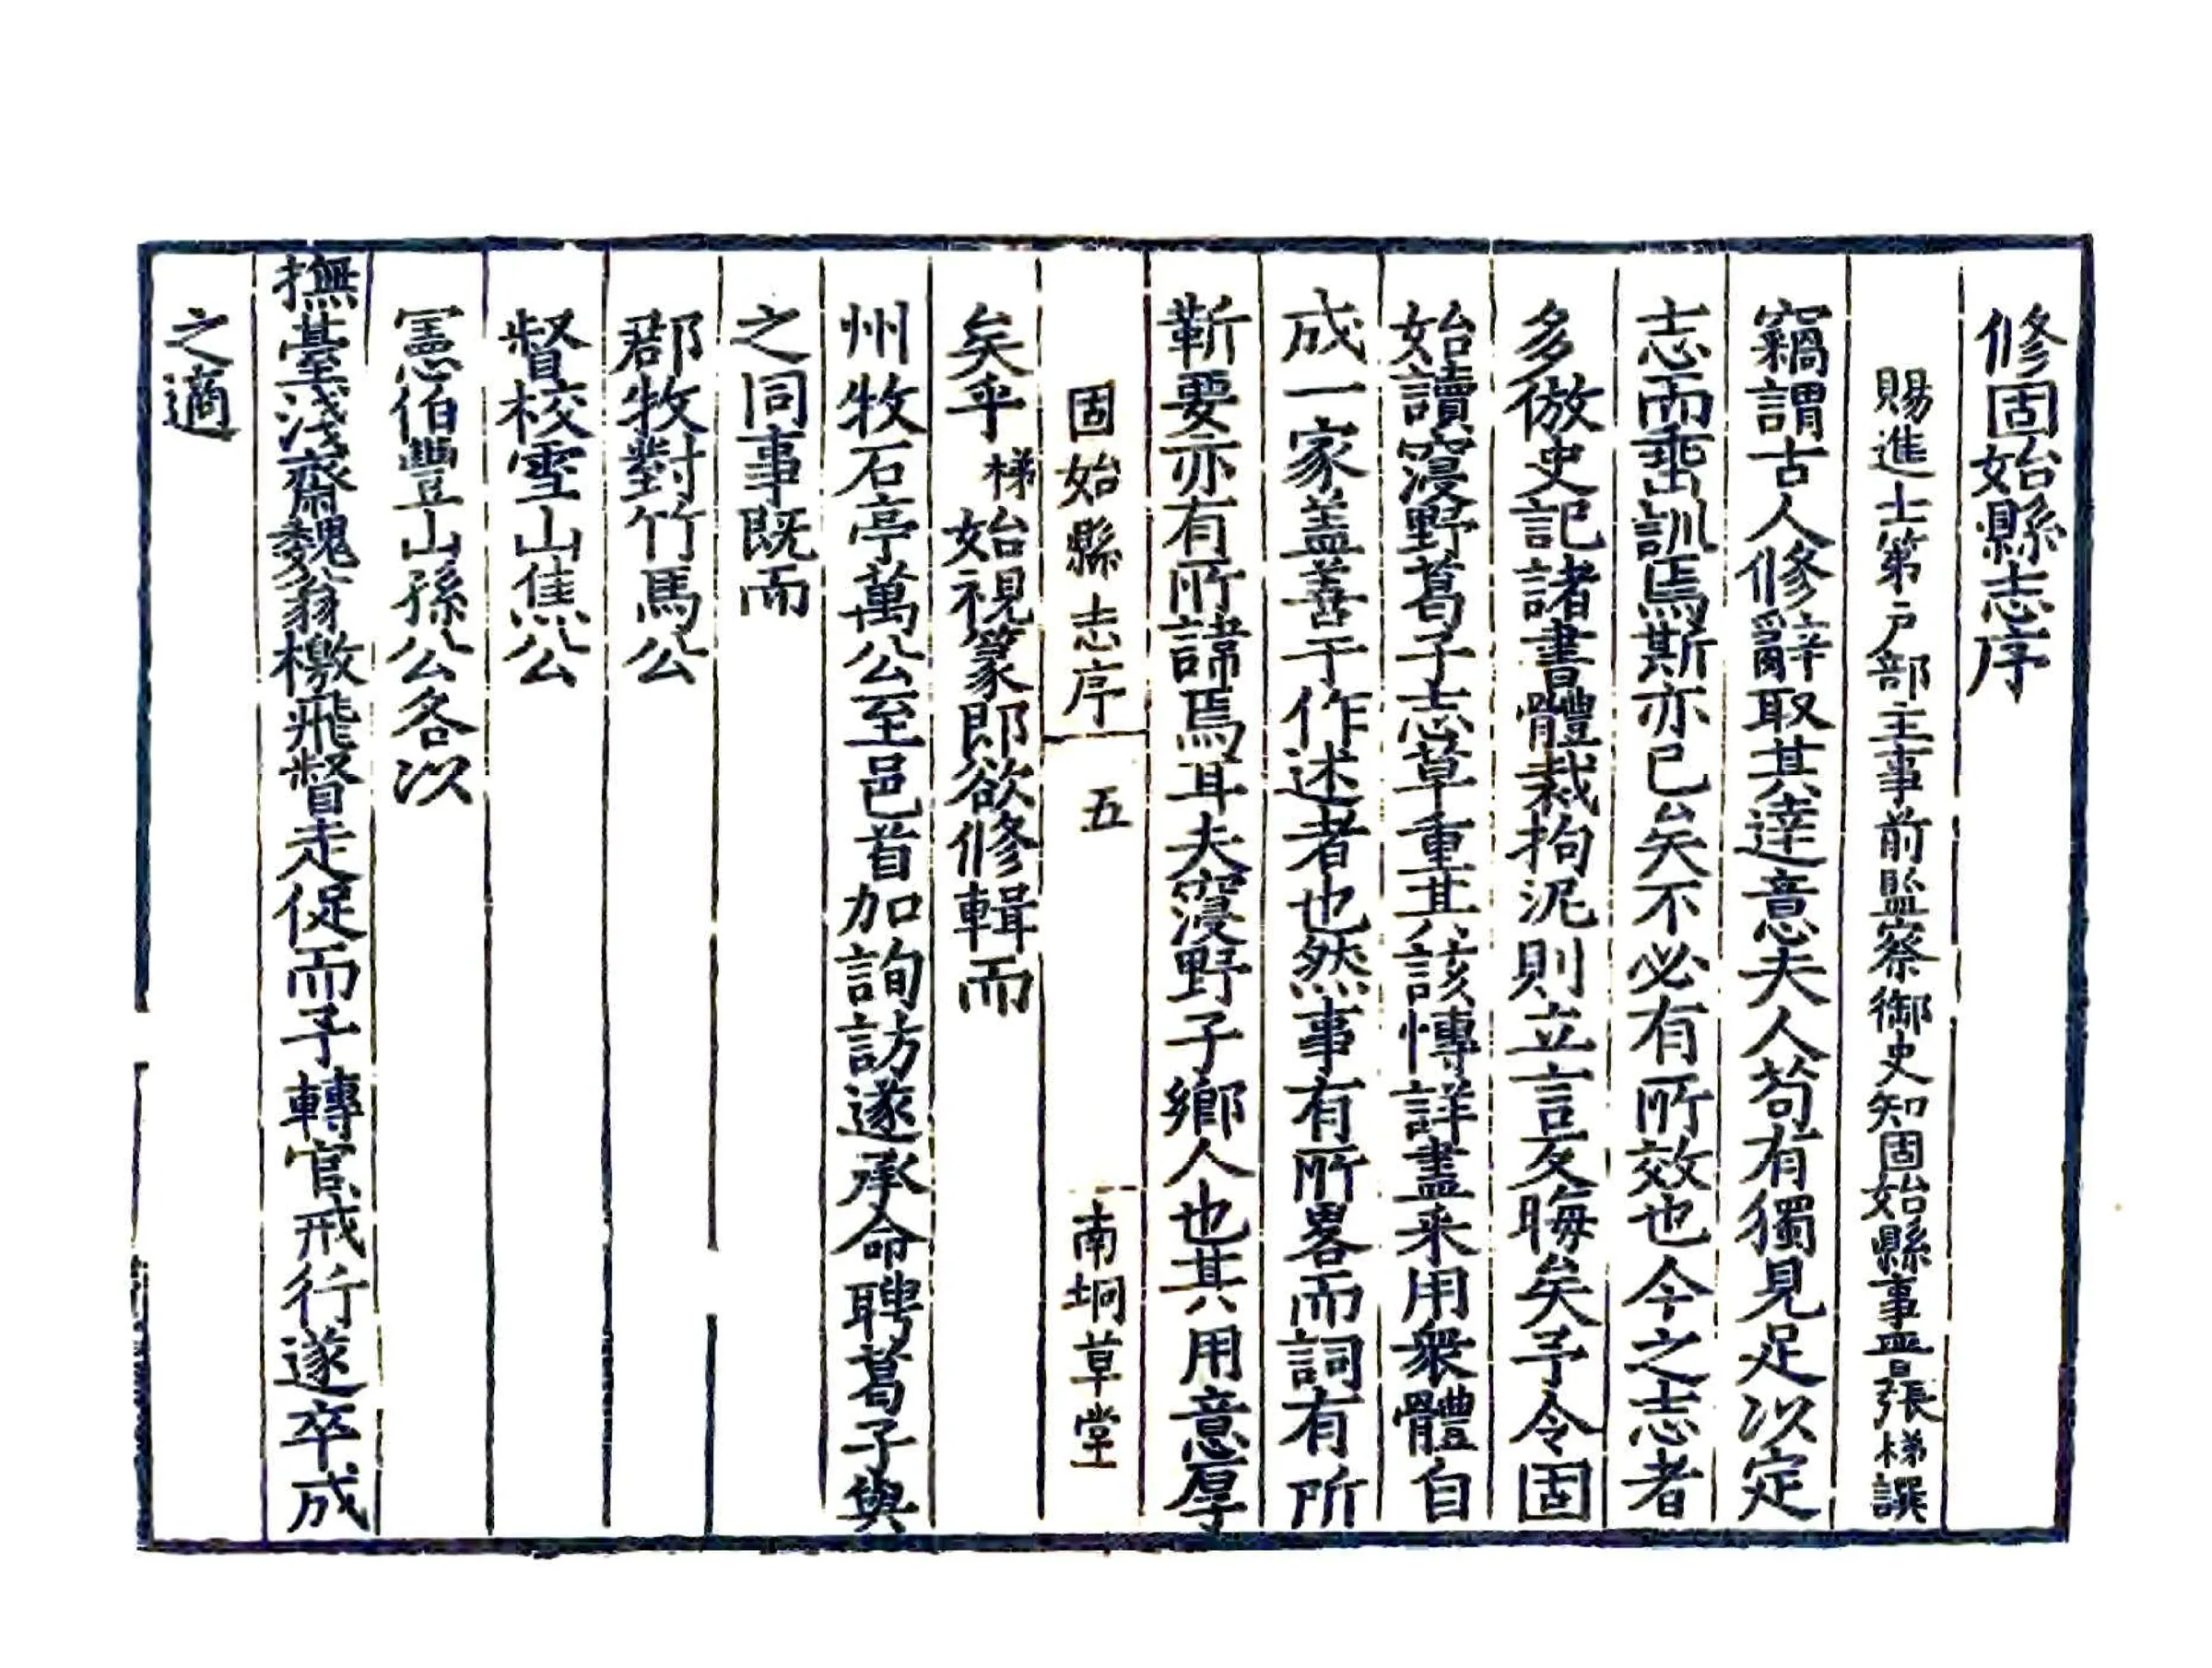 修固始縣志序
賜進士第戶部主事前監察御史知固始縣事晉張梯譔
竊謂古人修辭取其達意夫人苟有獨見足以定
志而垂訓焉斯亦已矣不必有所效也今之志者
多倣史記諸書體裁拘泥則立言反晦矣予令固
始讀窪野葛子志草重其該慱詳盡采用衆體自
成一家盖善于作述者也然事有所畧而詞有所
靳要亦有所諱焉耳夫窪野子鄉人也其用意厚
固始縣志序 五 南坰草堂
矣乎梯始視篆即欲修輯而
州牧石亭萬公至邑首加詢訪遂承命聘葛子與
之同事既而
郡牧對竹馬公
督校雪山焦公
憲伯豐山孫公各以
撫臺淺齋魏翁檄飛督走促而予轉官戒行遂卒成
之適